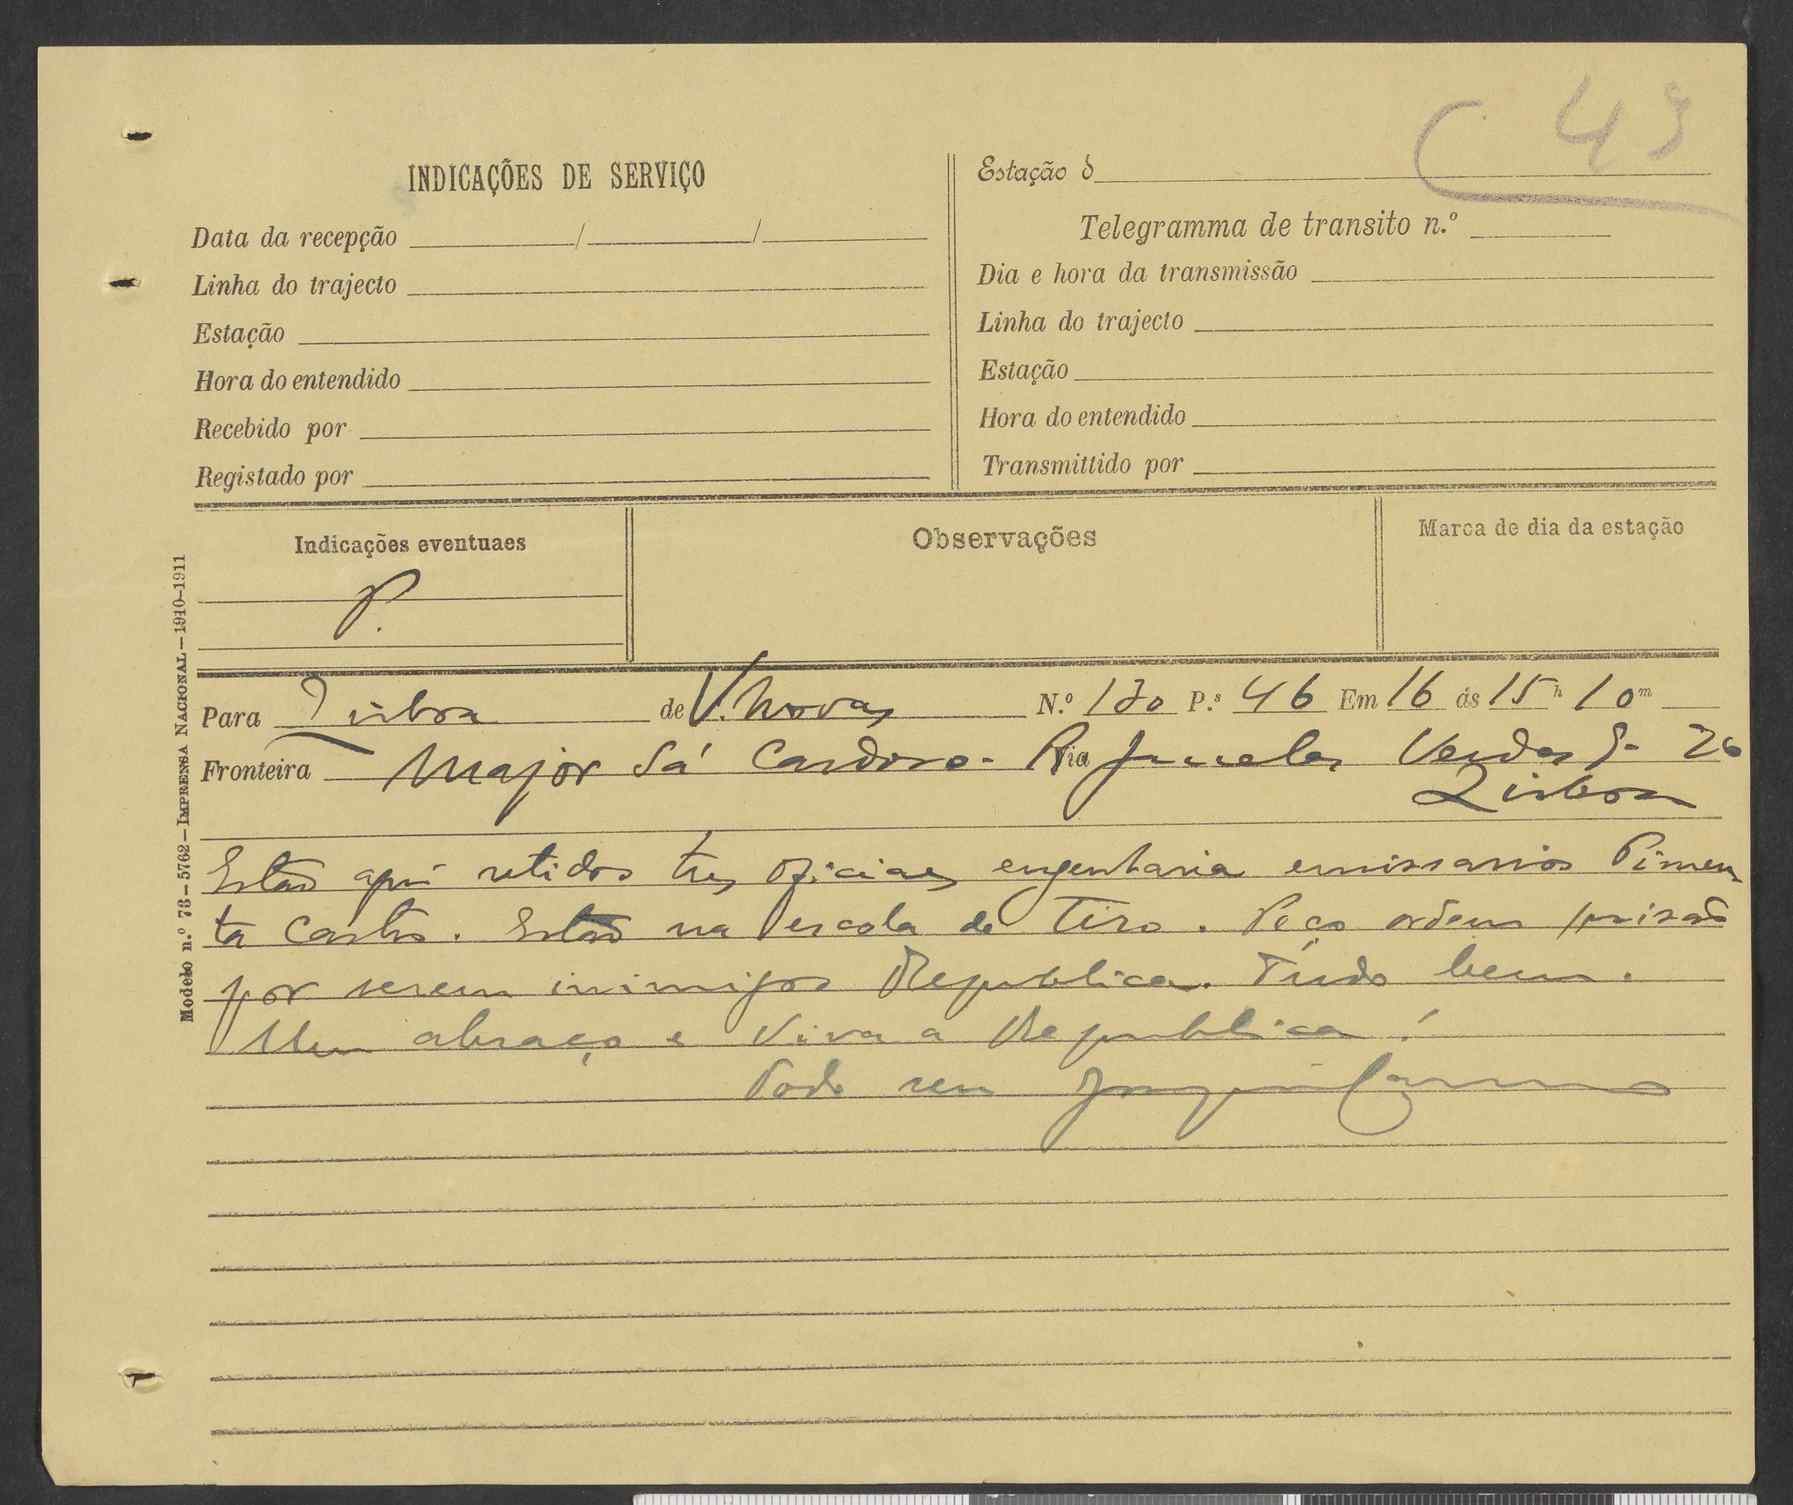 C 43
INDICAÇÕES DE SERVIÇO
Data da recepção / /
Linha do trajecto
Estação
Hora do entendido
Recebido por
Registado por
Estação d
Telegramma de transito n.º
Dia e hora da transmissão
Linha do trajecto
Estação
Hora do entendido
Transmittido por
Indicações eventuaes
P.
Observações
Marca de dia da estação
Modelo n.º 73—5762—IMPRENSA NACIONAL—1910-1911
Para Lisboa de V. Novas N.º 170 P.s 46 Em 16 ás 15 h 10 m
Fronteira Major Sá Cardoso - Via Janelas Verdes 26
Lisboa
Estão aqui retidos tres oficiaes engenharia emissarios Pimen
ta Castro. Estão na escola de Tiro. Peço ordem prisão
por serem inimigos Republica. Tudo bem.
Um abraço e Viva a Republica!
Todo seu